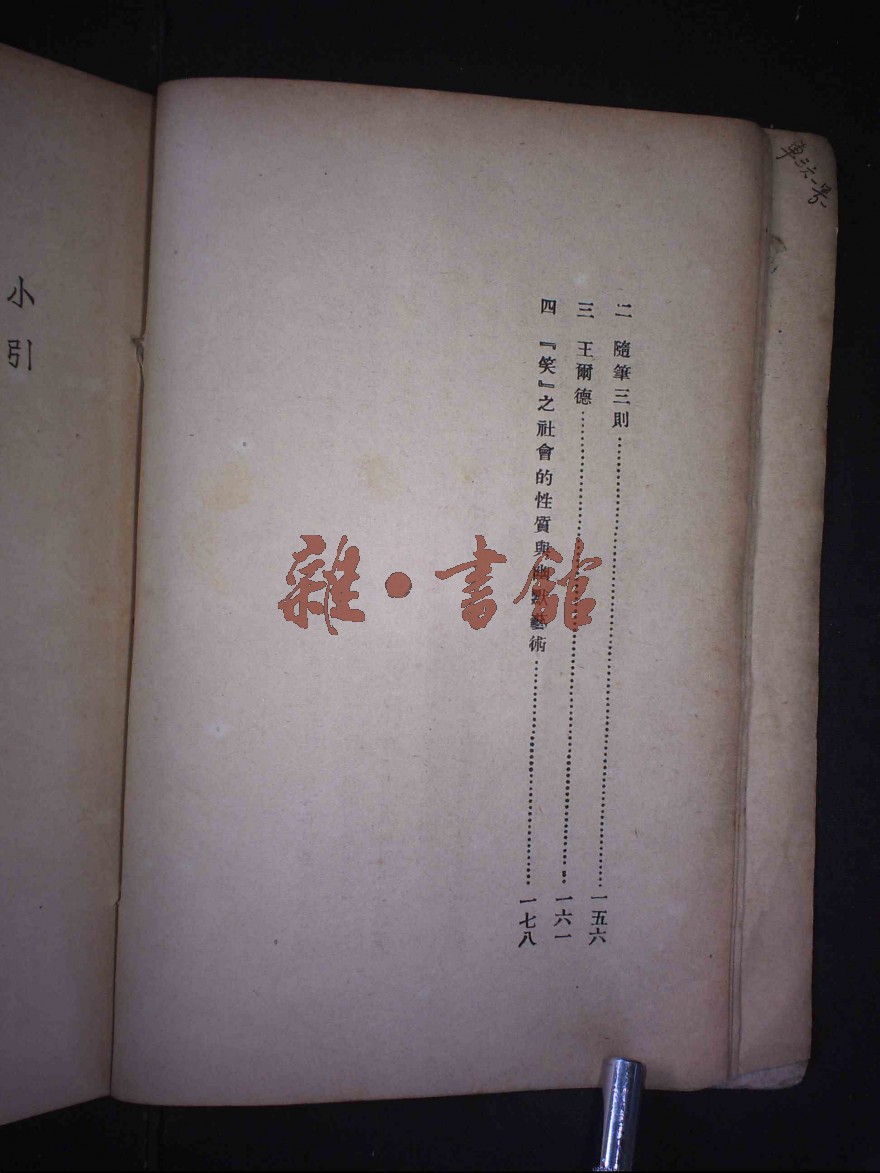 二　隨筆三則……一五六
三　王爾德……一六一
四　『笑』之社會的性質與幽默藝術……一七八
小引
雜・書館